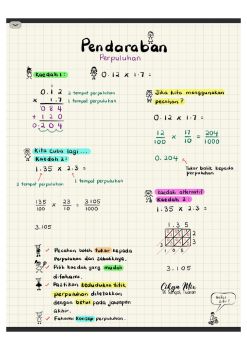 Pendaraban
Perpuluhan
Kaedah 1 :
0.12 x 1.7 =
0.12
x 1.7
084
+ 120
0.204
2 tempat perpuluhan
1 tempat perpuluhan
3 tempat perpuluhan
Jika kita menggunakan
pecahan?
0.12 x 1.7 =
12/100 x 17/10 = 204/1000
0.204
Tukar balik kepada
perpuluhan
Kita cuba lagi...
Kaedah 2 :
1.35 x 2.3 =
2 tempat perpuluhan
1 tempat perpuluhan
135/100 x 23/10 = 3105/1000
3.105
Kaedah alternatif
Kaedah 3 :
1.35 x 2.3 =
1. 3 5
3.105
Pecahan boleh tukar kepada
Perpuluhan dan sebaliknya.
Pilih kaedah yang mudah
difahami.
Pastikan kedudukan titik
perpuluhan diletakkan
dengan betul pada jawapan
akhir.
Fahami konsep perpuluhan.
Cikgu Mia